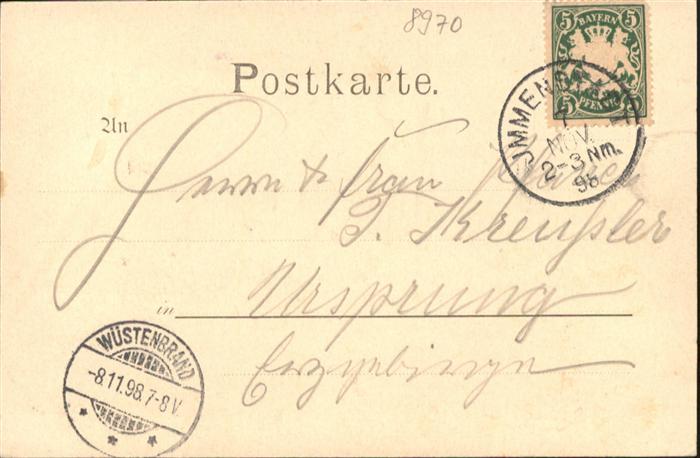 8970
5 BAYERN 5
5 PFENNIG 5
Postkarte.
IMMENSTADT
7
NOV.
2-3 Nm.
98
An
Herrn & Frau
J. Kreußler
in Ursprung
Erzgebirge
WÜSTENBRAND
-8.11.98.7-8V.